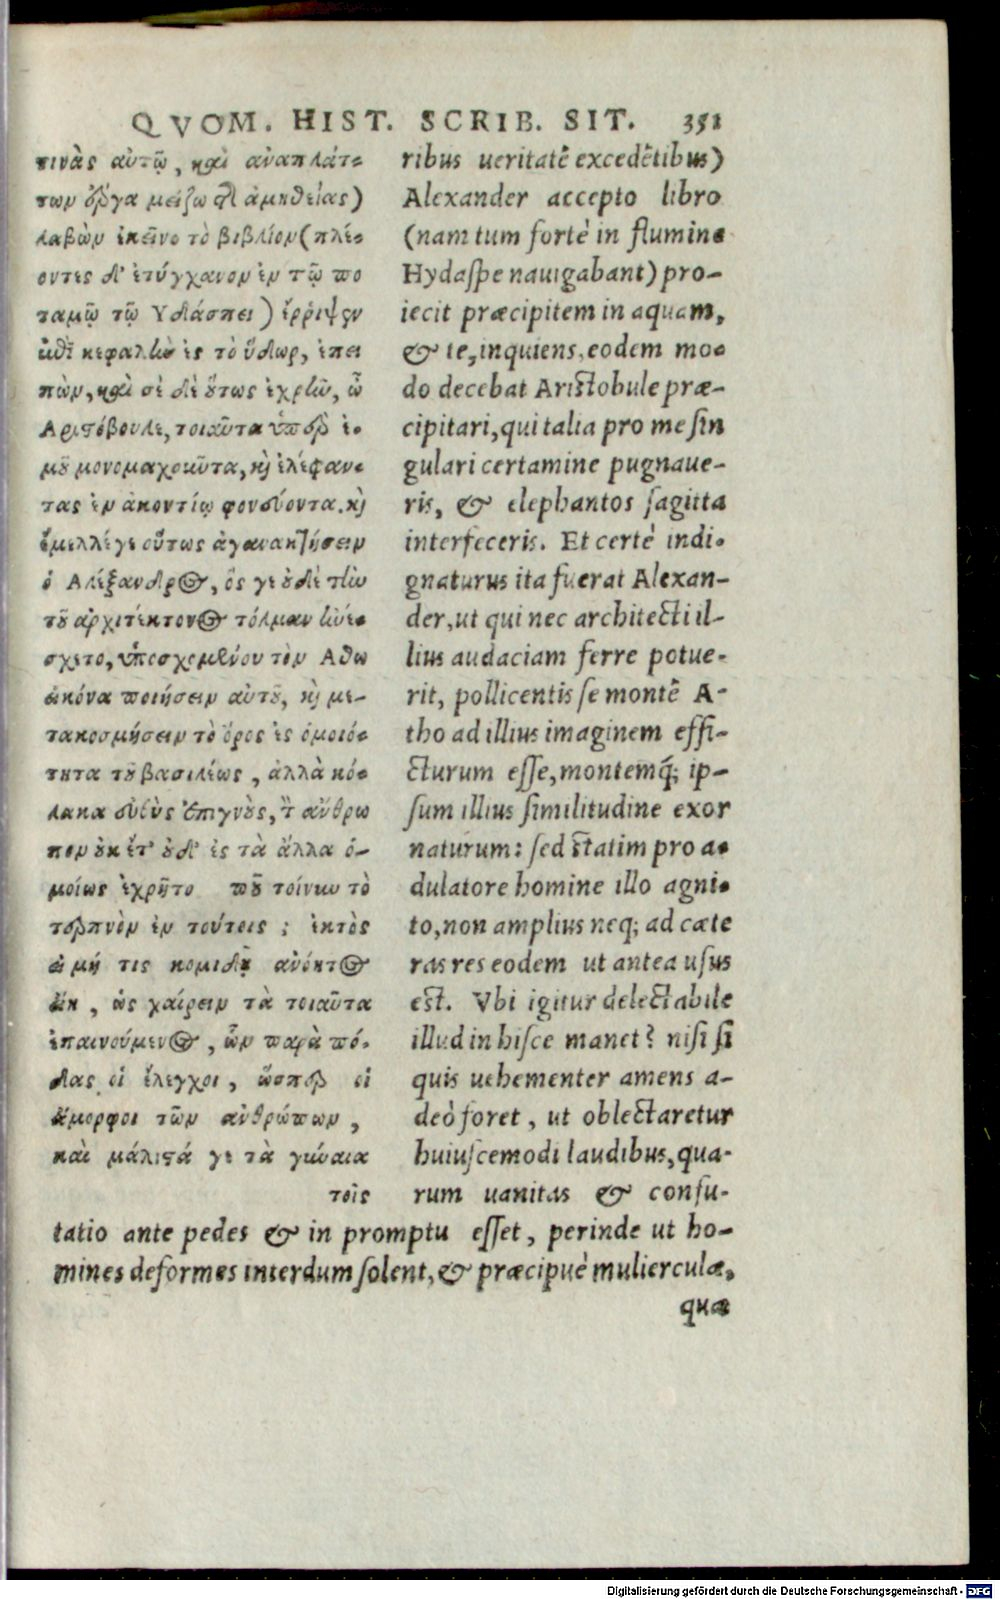 QVOM. HIST. SCRIB. SIT. 351
τινὰς αὐτῷ, καὶ ἀναπλάτ-
των ἔργα μείζω τῆς ἀληθείας)
λαβὼν ἐκεῖνο τὸ βιβλίον (πλέ-
οντες δ' ἐτύγχανον ἐν τῷ πο
ταμῷ τῷ Υδάσπει) ἔρριψεν
ἐπὶ κεφαλὴν ἐς τὸ ὕδωρ, ἐπει
πὼν, καὶ σὲ δὲ οὕτως ἐχρῆν, ὦ
Αριστόβουλε, τοιαῦτα ὑπὲρ ἐ-
μοῦ μονομαχοῦντα, καὶ ἐλέφαν-
τας ἐν ἀκοντίῳ φονεύοντα. καὶ
ἔμελλέγε οὕτως ἀγανακτήσειν
ὁ Αλέξανδρος, ὅς γε οὐδὲ τὴν
τοῦ ἀρχιτέκτονος τόλμαν ἠνέ-
σχετο, ὑποσχομένου τὸν Αθω
εἰκόνα ποιήσειν αὐτοῦ, καὶ με-
τακοσμήσειν τὸ ὄρος ἐς ὁμοιό-
τητα τοῦ βασιλέως, ἀλλὰ κό-
λακα εὐθὺς ἐπιγνοὺς, τ ἄνθρω
πον οὐκ ἔτ' οὐδ' ἐς τὰ ἄλλα ὁ-
μοίως ἐχρῆτο ποῦ τοίνυν τὸ
τερπνὸν ἐν τούτοις; ἐκτὸς
εἰ μή τις κομιδῇ ἀνόητος
εἴη, ὡς χαίρειν τὰ τοιαῦτα
ἐπαινούμενος, ὧν παρὰ πό-
δας οἱ ἔλεγχοι, ὥσπερ οἱ
ἄμορφοι τῶν ἀνθρώπων,
καὶ μάλιστά γε τὰ γύναια
τοῖς
ribus ueritatē excedētibus)
Alexander accepto libro
(nam tum fortè in flumine
Hydaspe nauigabant) pro-
iecit præcipitem in aquam,
& te, inquiens, eodem mo-
do decebat Aristobule præ-
cipitari, qui talia pro me sin
gulari certamine pugnaue-
ris, & elephantos sagitta
interfeceris. Et certè indi-
gnaturus ita fuerat Alexan-
der, ut qui nec architecti il-
lius audaciam ferre potue-
rit, pollicentis se montē A-
tho ad illius imaginem effi-
cturum esse, montemq́; ip-
sum illius similitudine exor
naturum: sed statim pro a-
dulatore homine illo agni-
to, non amplius neq; ad cæte
ras res eodem ut antea usus
est. Vbi igitur delectabile
illud in hisce manet? nisi si
quis uehementer amens a-
deò foret, ut oblectaretur
huiuscemodi laudibus, qua-
rum uanitas & confu-
tatio ante pedes & in promptu esset, perinde ut ho-
mines deformes interdum solent, & præcipuè mulierculæ,
quæ
Digitalisierung gefördert durch die Deutsche Forschungsgemeinschaft - DFG